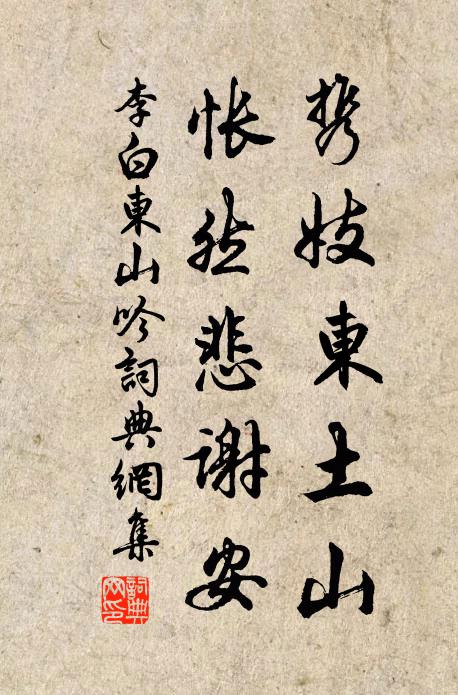 携妓東土山
悵然悲謝安
李白東山吟詞典網集
詞典網印